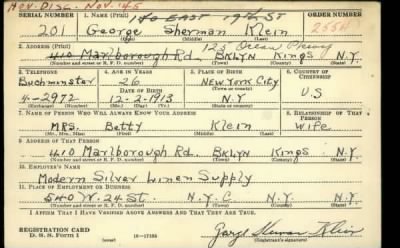 Nov. Disc. Nov. 45
140 EAST 19th St
SERIAL NUMBER 1. NAME (Print) ORDER NUMBER
201 George Sherman Klein 255A
(First) (Middle) (Last)
2. ADDRESS (Print) 125 Ocean
410 Marlborough Rd. BKLYN Kings N.Y.
(Number and street or R. F. D. number) (Town) (County) (State)
3. TELEPHONE 4. AGE IN YEARS 5. PLACE OF BIRTH 6. COUNTRY OF CITIZENSHIP
Buchminster 26 New York City
DATE OF BIRTH U.S
4-2972 12-2-1913 N.Y
(Exchange) (No.) (Mo.) (Day) (Yr.) (State or country)
7. NAME OF PERSON WHO WILL ALWAYS KNOW YOUR ADDRESS 8. RELATIONSHIP OF THAT PERSON
MRS. Betty Klein Wife
(Mr., Mrs., Miss) (First) (Middle) (Last)
9. ADDRESS OF THAT PERSON
410 Marlborough Rd. BKLYN Kings N.Y
(Number and street or R. F. D. number) (Town) (County) (State)
10. EMPLOYER'S NAME
Modern Silver Linen Supply
11. PLACE OF EMPLOYMENT OR BUSINESS
540 W. 24 St. N.Y.C. N.Y
(Number and street or R. F. D. number) (Town) (County) (State)
I AFFIRM THAT I HAVE VERIFIED ABOVE ANSWERS AND THAT THEY ARE TRUE.
REGISTRATION CARD
D. S. S. FORM 1 16-17105 George Sherman Klein
(Registrant's signature)